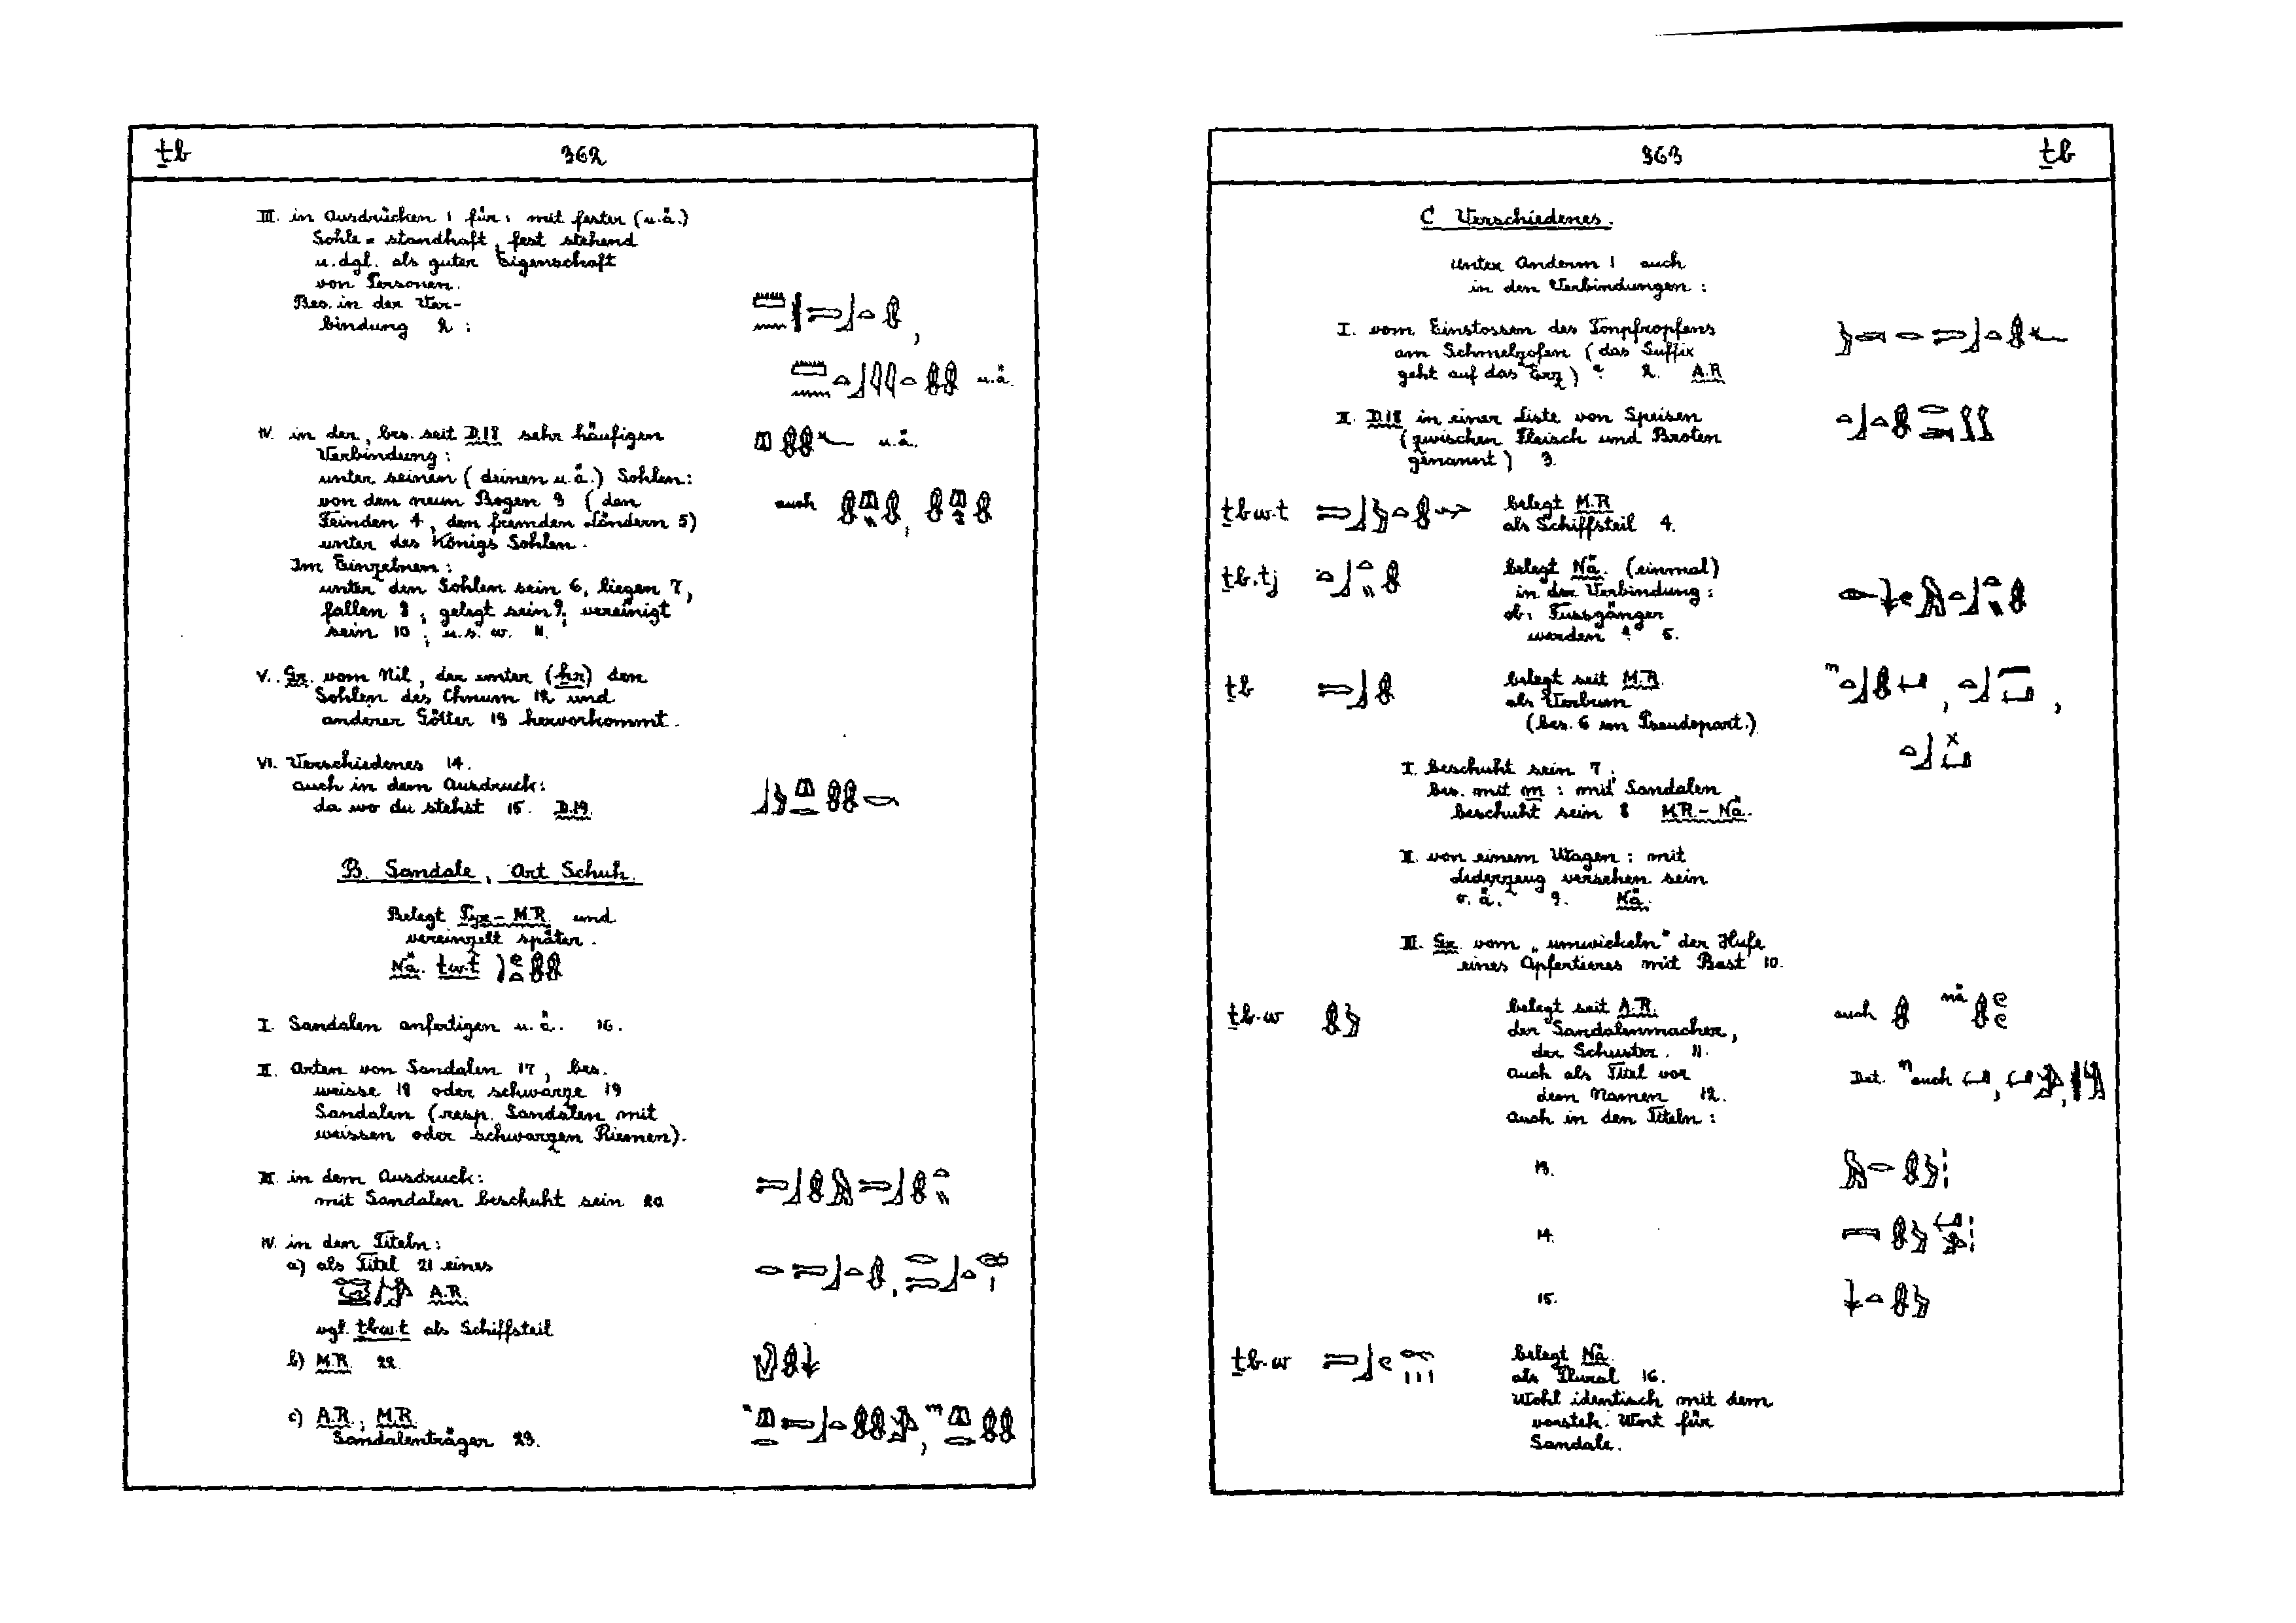 ṯb 362
III. in Ausdrücken 1 für: mit fester (u.ä.)
Sohle = standhaft, fest stehend
u.dgl. als guter Eigenschaft
von Personen.
Bes. in der Ver-
bindung 2:
u.ä.
IV. in der, bes. seit D.18 sehr häufigen
Verbindung: u.ä.
unter seinen (deinen u.ä.) Sohlen:
von den neun Bogen 3 (den auch
Feinden 4, den fremden Ländern 5)
unter des Königs Sohlen.
Im Einzelnen:
unter den Sohlen sein 6, liegen 7,
fallen 8, gelegt sein 9, vereinigt
sein 10, u.s.w. 11.
V. Gr. vom Nil, der unter (ẖr) den
Sohlen des Chnum 12 und
anderer Götter 13 hervorkommt.
VI. Verschiedenes 14.
auch in dem Ausdruck:
da wo du stehst 15. D.19.
B. Sandale, Art Schuh.
Belegt Pyr - M.R. und
vereinzelt später.
Nä. ṯw.t
I. Sandalen anfertigen u.ä. 16.
II. Arten von Sandalen 17, bes.
weisse 18 oder schwarze 19
Sandalen (resp. Sandalen mit
weissen oder schwarzen Riemen).
III. in dem Ausdruck:
mit Sandalen beschuht sein 20
IV. in den Titeln:
a) als Titel 21 eines
A.R.
vgl. ṯbw.t als Schiffsteil
b) M.R. 22.
c) A.R., M.R.
Sandalenträger 23.
363 ṯb
C Verschiedenes.
Unter Anderm 1 auch
in den Verbindungen:
I. vom Einstossen des Tonpfropfens
am Schmelzofen (das Suffix
geht auf das Erz) ? 2. A.R.
II. D.18 in einer Liste von Speisen
(zwischen Fleisch und Broten
genannt) 3.
ṯbw.t belegt M.R.
als Schiffsteil 4.
ṯb.tj belegt Nä. (einmal)
in der Verbindung:
ob: Fussgänger
werden ? 5.
ṯb belegt seit M.R.
als Verbum
(bes. 6 im Pseudopart.)
I. beschuht sein 7;
bes. mit m : mit Sandalen
beschuht sein 8 MR - Nä.
II. von einem Wagen: mit
Lederzeug versehen sein
o.ä. 9. Nä.
III. Gr. vom „umwickeln" der Hufe
eines Opfertieres mit Bast 10.
ṯb.w belegt seit A.R. auch nä
der Sandalenmacher,
der Schuster. 11.
Auch als Titel vor Det. auch
dem Namen 12.
Auch in den Titeln:
13.
14.
15.
ṯb.w belegt Nä.
als Plural 16.
Wohl identisch mit dem
vorsteh. Wort für
Sandale.